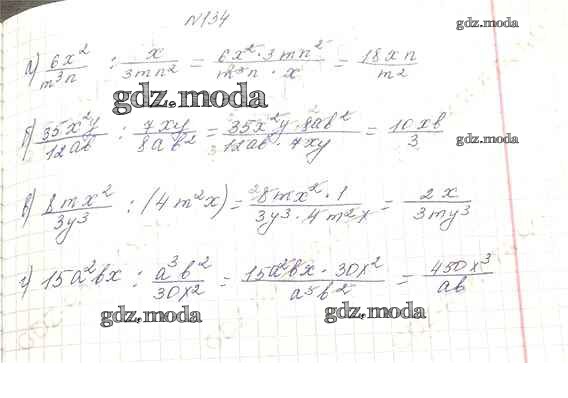 N134
gdz.moda
а) 6x²/m³n : x/3mn² = 6x²·3mn²/m³n·x = 18xn/m²
gdz.moda
gdz.moda
б) 35x²y/12ab : 7xy/8ab² = 35x²y·8ab²/12ab·7xy = 10xb/3
gdz.moda
в) 8mx²/3y³ : (4m²x) = 8mx²·1/3y³·4m²x = 2x/3my³
г) 15a²bx : a³b²/30x² = 15a²bx·30x²/a³b² = 450x³/ab
gdz.moda
gdz.moda
gdz.moda